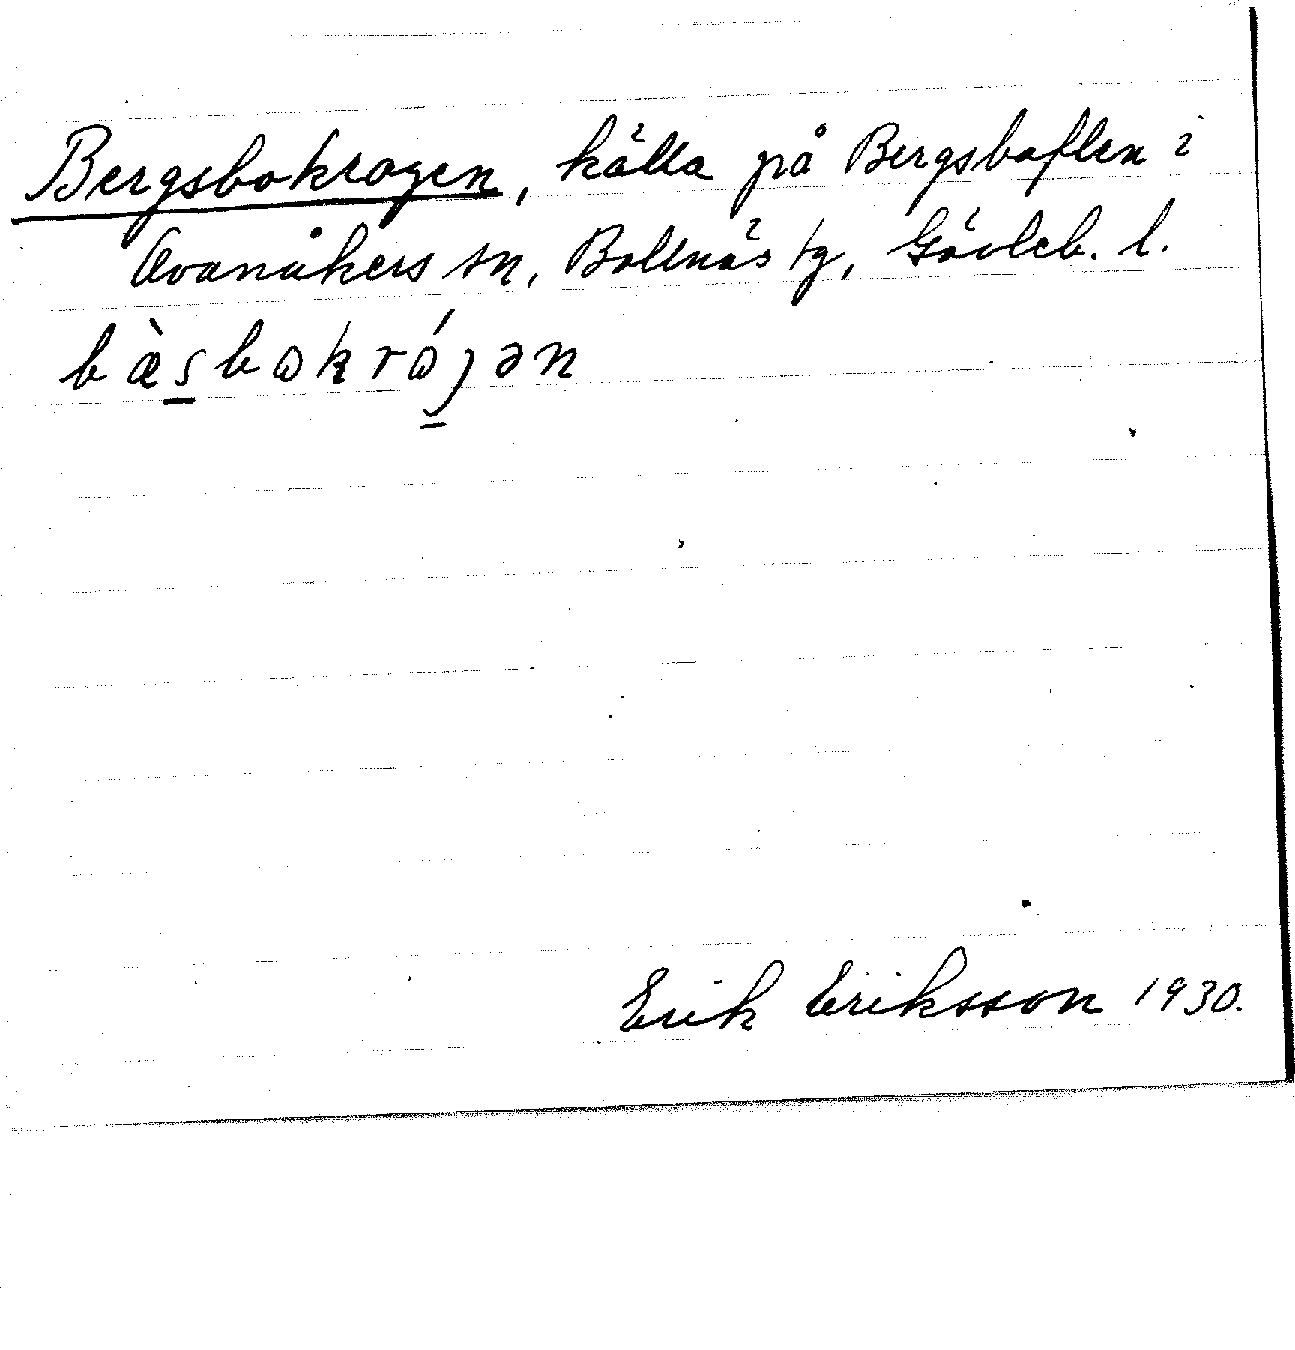 Bergsbokrogen, källa på Bergsboflen i
Ovanåkers sn, Bollnäs tg, Gävleb. l.
bæ̀s̠bωkrώȷən
Erik Eriksson 1930.